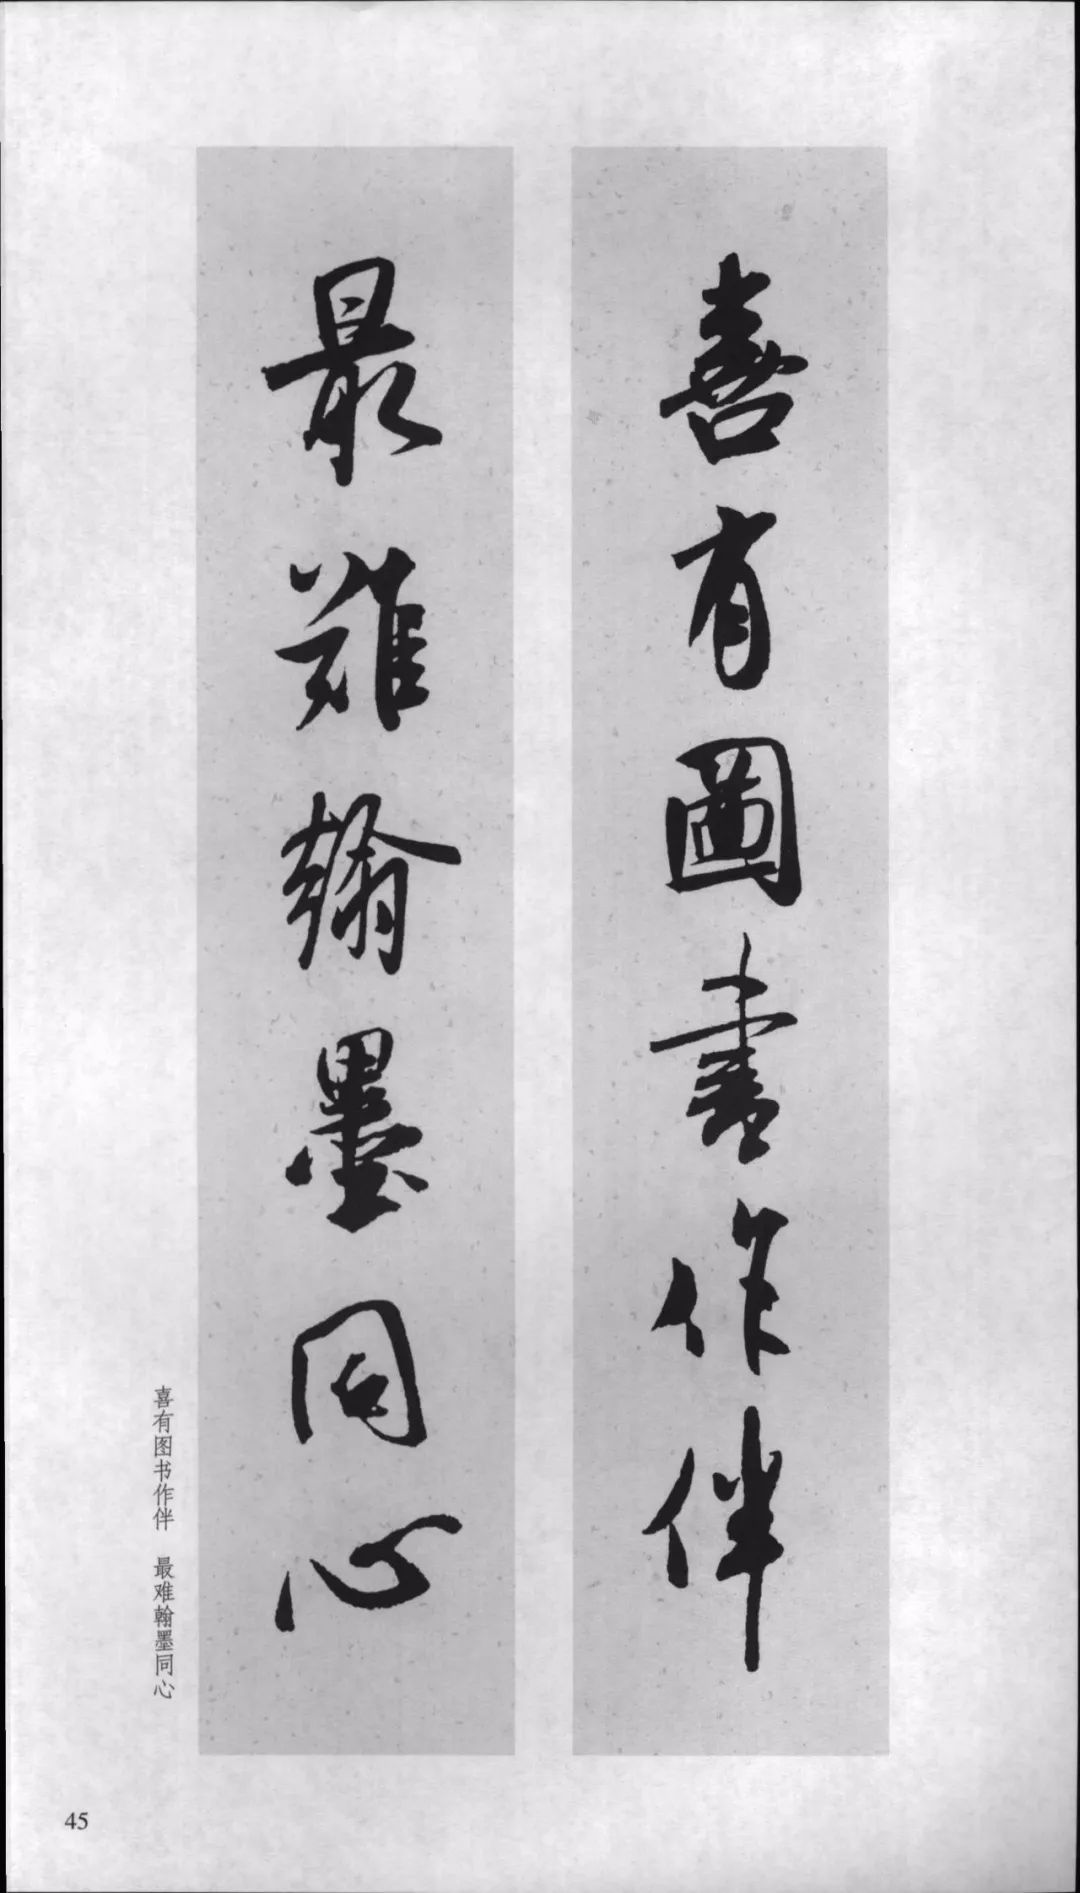 喜有圖書作伴
最難翰墨同心
喜有图书作伴 最难翰墨同心
45